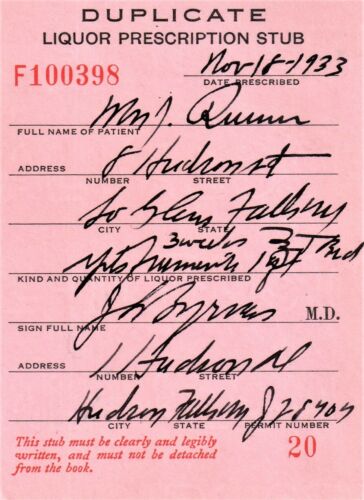 DUPLICATE
LIQUOR PRESCRIPTION STUB
F100398
Nov 18-1933
DATE PRESCRIBED
FULL NAME OF PATIENT
8 Hudson st
ADDRESS
NUMBER STREET
So Glens Falls NY
CITY STATE
3 weeks
KIND AND QUANTITY OF LIQUOR PRESCRIBED
M.D.
SIGN FULL NAME
1 Hudson
ADDRESS
NUMBER STREET
Hudson Falls NY
CITY STATE PERMIT NUMBER
This stub must be clearly and legibly
written, and must not be detached
from the book.
20